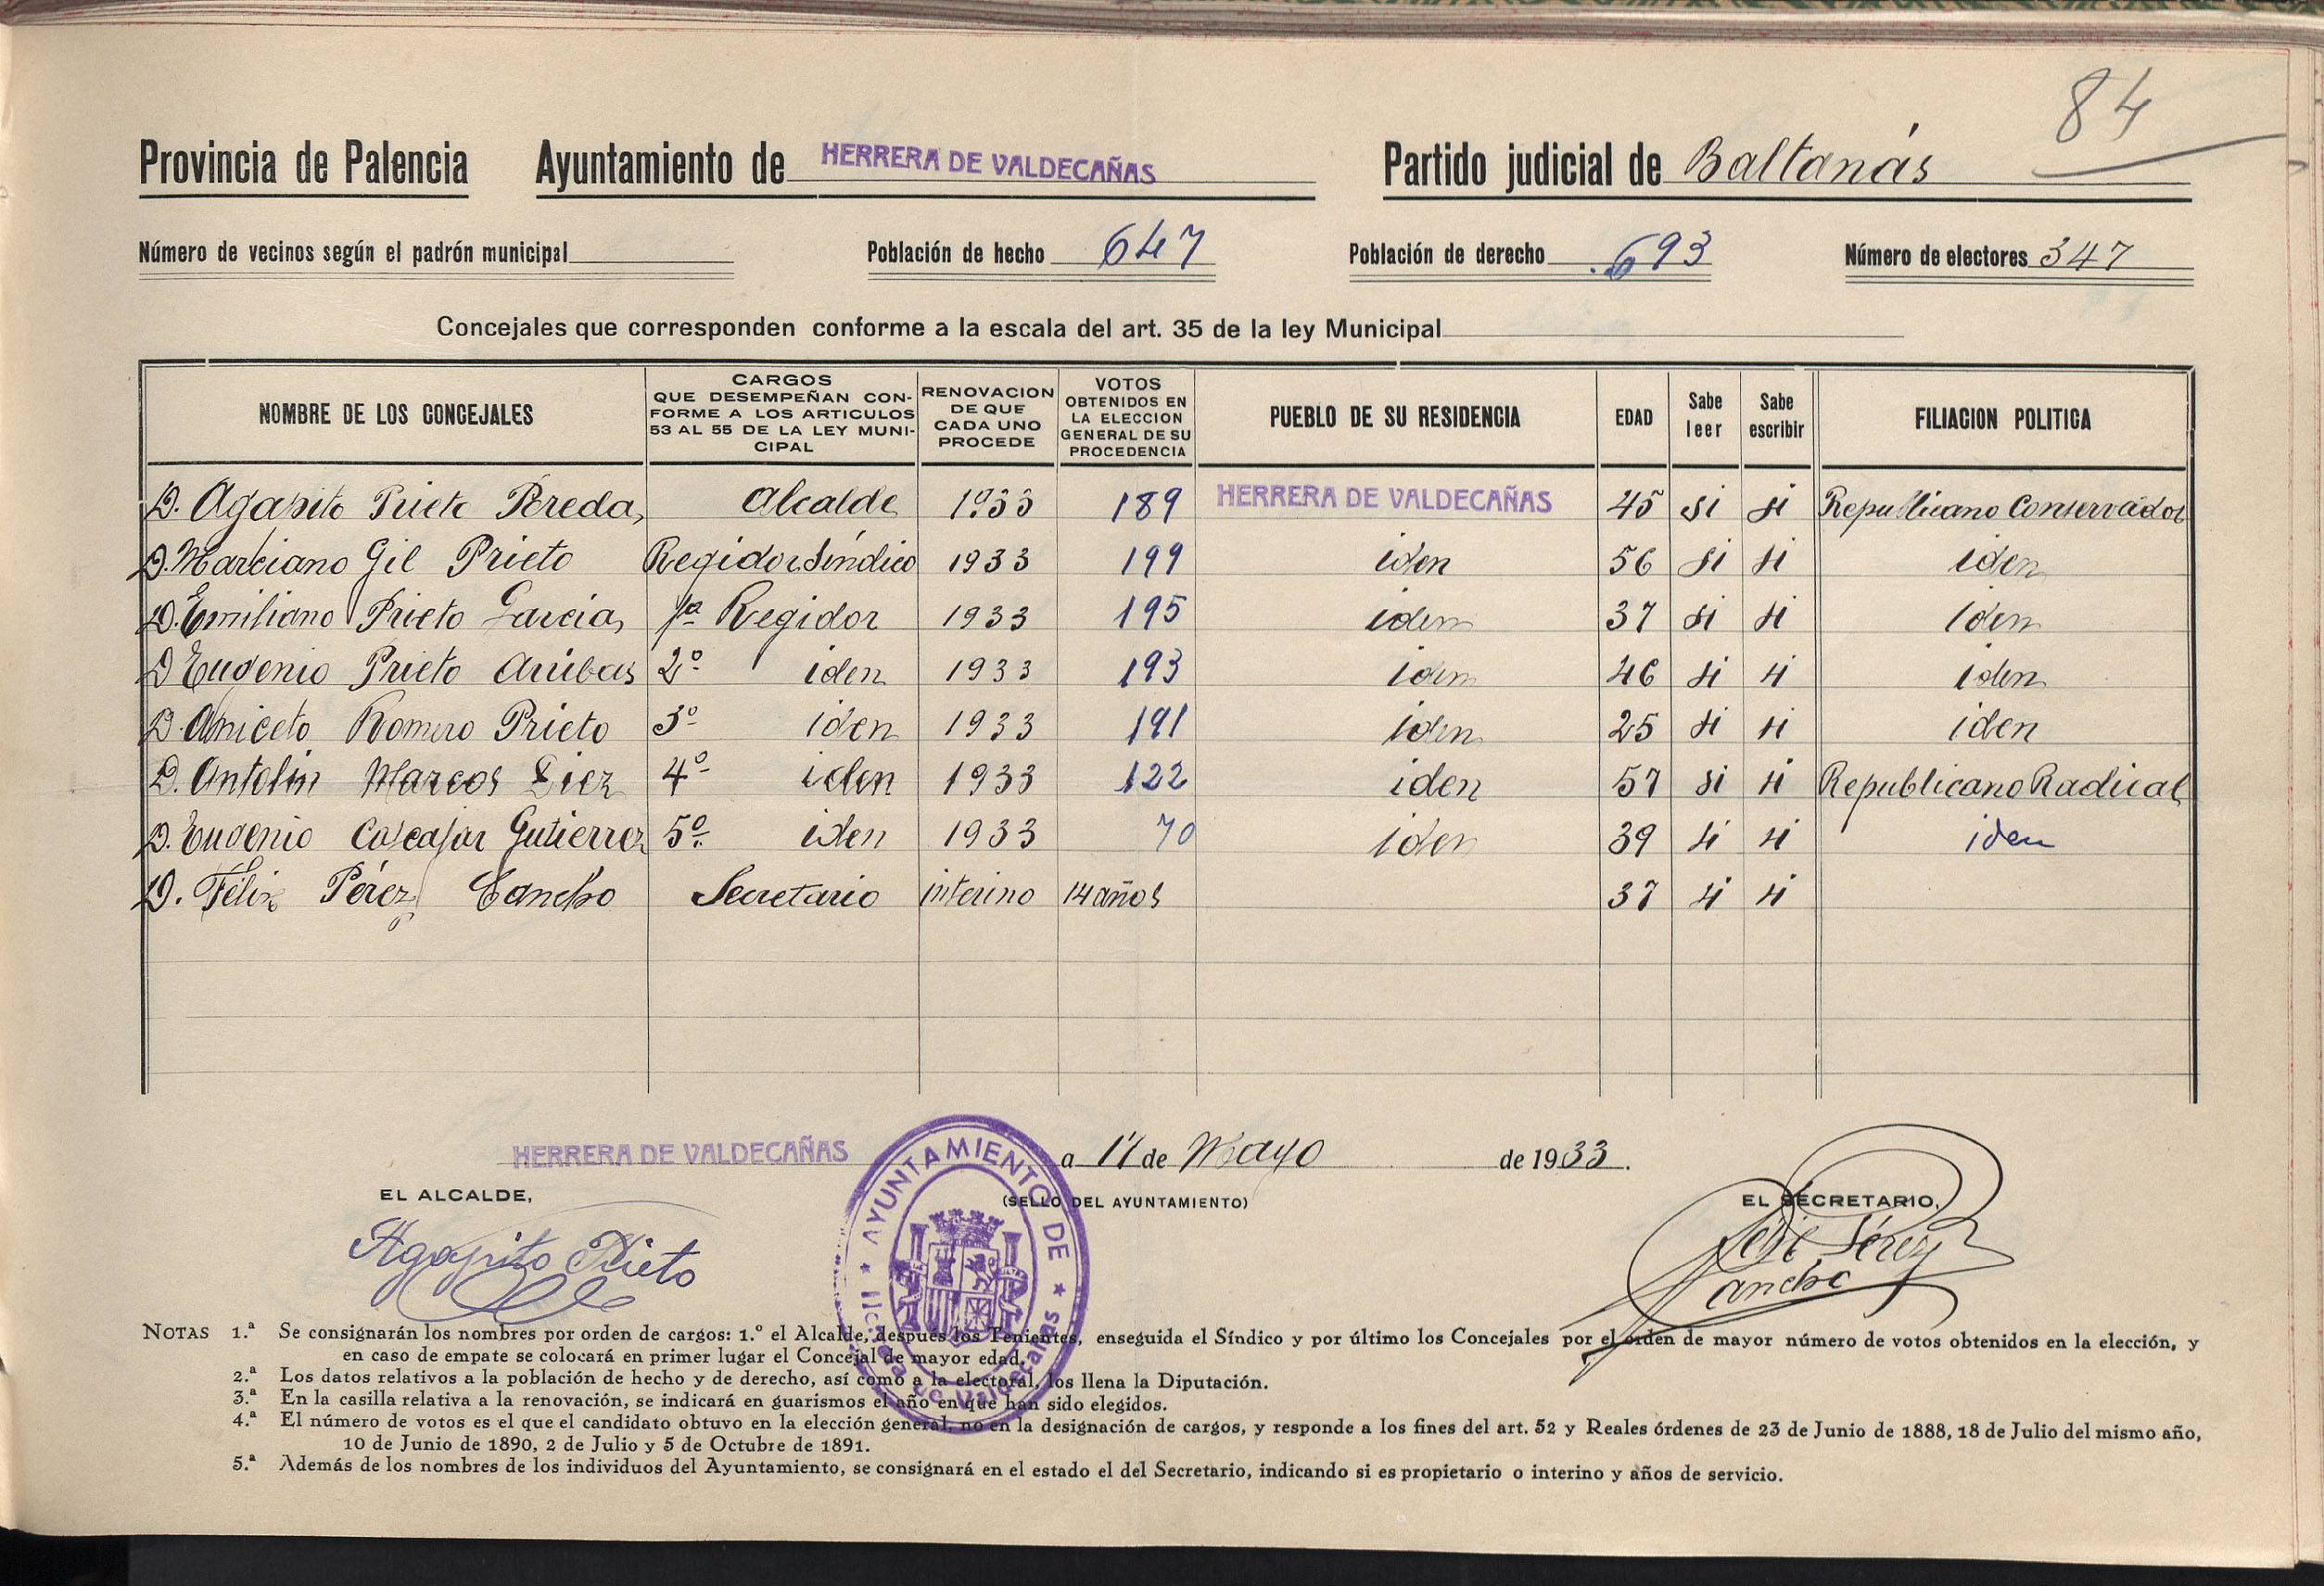 84
Provincia de Palencia Ayuntamiento de HERRERA DE VALDECAÑAS Partido judicial de Baltanás
Número de vecinos según el padrón municipal Población de hecho 647 Población de derecho 693 Número de electores 347
Concejales que corresponden conforme a la escala del art. 35 de la ley Municipal
NOMBRE DE LOS CONCEJALES
CARGOS
QUE DESEMPEÑAN CON-
FORME A LOS ARTICULOS
53 AL 55 DE LA LEY MUNI-
CIPAL
RENOVACION
DE QUE
CADA UNO
PROCEDE
VOTOS
OBTENIDOS EN
LA ELECCION
GENERAL DE SU
PROCEDENCIA
PUEBLO DE SU RESIDENCIA
EDAD
Sabe
leer
Sabe
escribir
FILIACION POLITICA
D. Agapito Prieto Pereda, Alcalde 1933 189 HERRERA DE VALDECAÑAS 45 si si Republicano Conservador
D. Marciano Gil Prieto Regidor Síndico 1933 199 iden 56 si si iden
D. Emiliano Prieto García, 1º Regidor 1933 195 idem 37 si si idem
D Eugenio Prieto Arribas 2º iden 1933 193 idem 46 si si iden
D. Aniceto Romero Prieto 3º iden 1933 191 iden 25 si si iden
D. Antolin Marcos Diez 4º iden 1933 122 iden 57 si si Republicano Radical
D. Eugenio Cascajar Gutierrez 5º iden 1933 70 iden 39 si si iden
D. Félix Pérez Cancho Secretario interino 14 años 37 si si
HERRERA DE VALDECAÑAS a 17 de Mayo de 1933.
EL ALCALDE, (SELLO DEL AYUNTAMIENTO) EL SECRETARIO,
Agapito Prieto
Félix Pérez
Cancho
AYUNTAMIENTO DE
Herrera de Valdecañas
NOTAS 1.ª Se consignarán los nombres por orden de cargos: 1.º el Alcalde, después los Tenientes, enseguida el Síndico y por último los Concejales por el orden de mayor número de votos obtenidos en la elección, y
en caso de empate se colocará en primer lugar el Concejal de mayor edad.
2.ª Los datos relativos a la población de hecho y de derecho, así como a la electoral, los llena la Diputación.
3.ª En la casilla relativa a la renovación, se indicará en guarismos el año en que han sido elegidos.
4.ª El número de votos es el que el candidato obtuvo en la elección general, no en la designación de cargos, y responde a los fines del art. 52 y Reales órdenes de 23 de Junio de 1888, 18 de Julio del mismo año,
10 de Junio de 1890, 2 de Julio y 5 de Octubre de 1891.
5.ª Además de los nombres de los individuos del Ayuntamiento, se consignará en el estado el del Secretario, indicando si es propietario o interino y años de servicio.